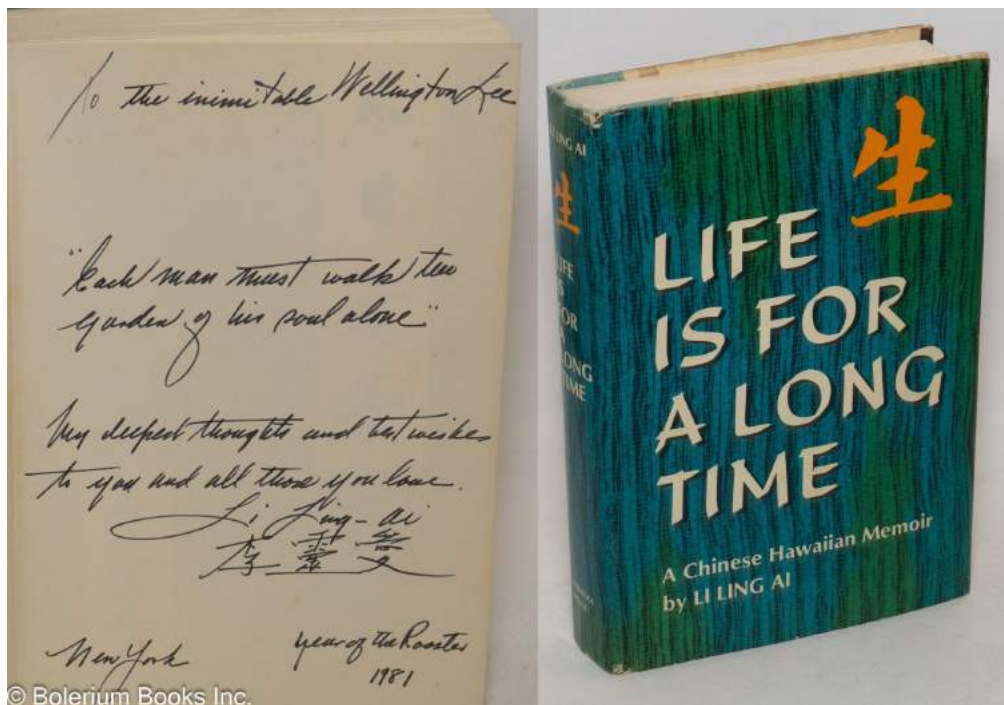 To the inimitable Wellington Lee
"Each man must walk the
garden of his soul alone"
My deepest thoughts and best wishes
to you and all those you love.
Li Ling-ai
李靈愛
New York
year of the Rooster
1981
© Bolerium Books Inc.
LI LING AI
生
LIFE
IS
FOR
A
LONG
TIME
生
LIFE
IS FOR
A LONG
TIME
A Chinese Hawaiian Memoir
by LI LING AI